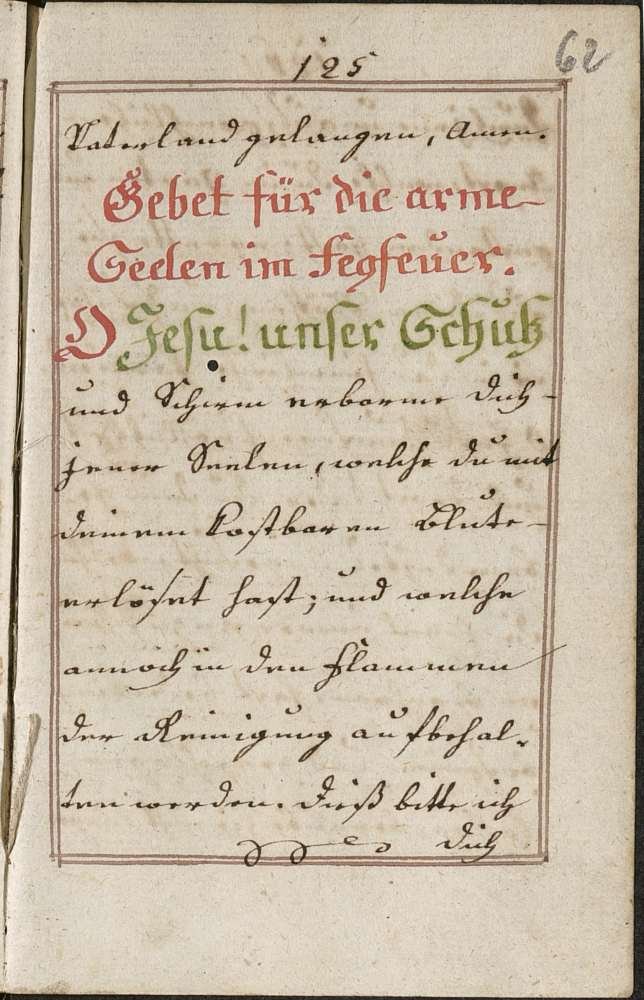 125
62
Vaterland gelangen, Amen.
Gebet für die arme
Seelen im Fegfeüer.
O Jesu! unser Schutz
und Schirm erbarme dich
jener Seelen, welche du mit
deinem kostbaren Blute
erlöset hast; und welche
annoch in den Flammen
der Reinigung aufbehal-
ten werden. Dieß bitte ich
dich